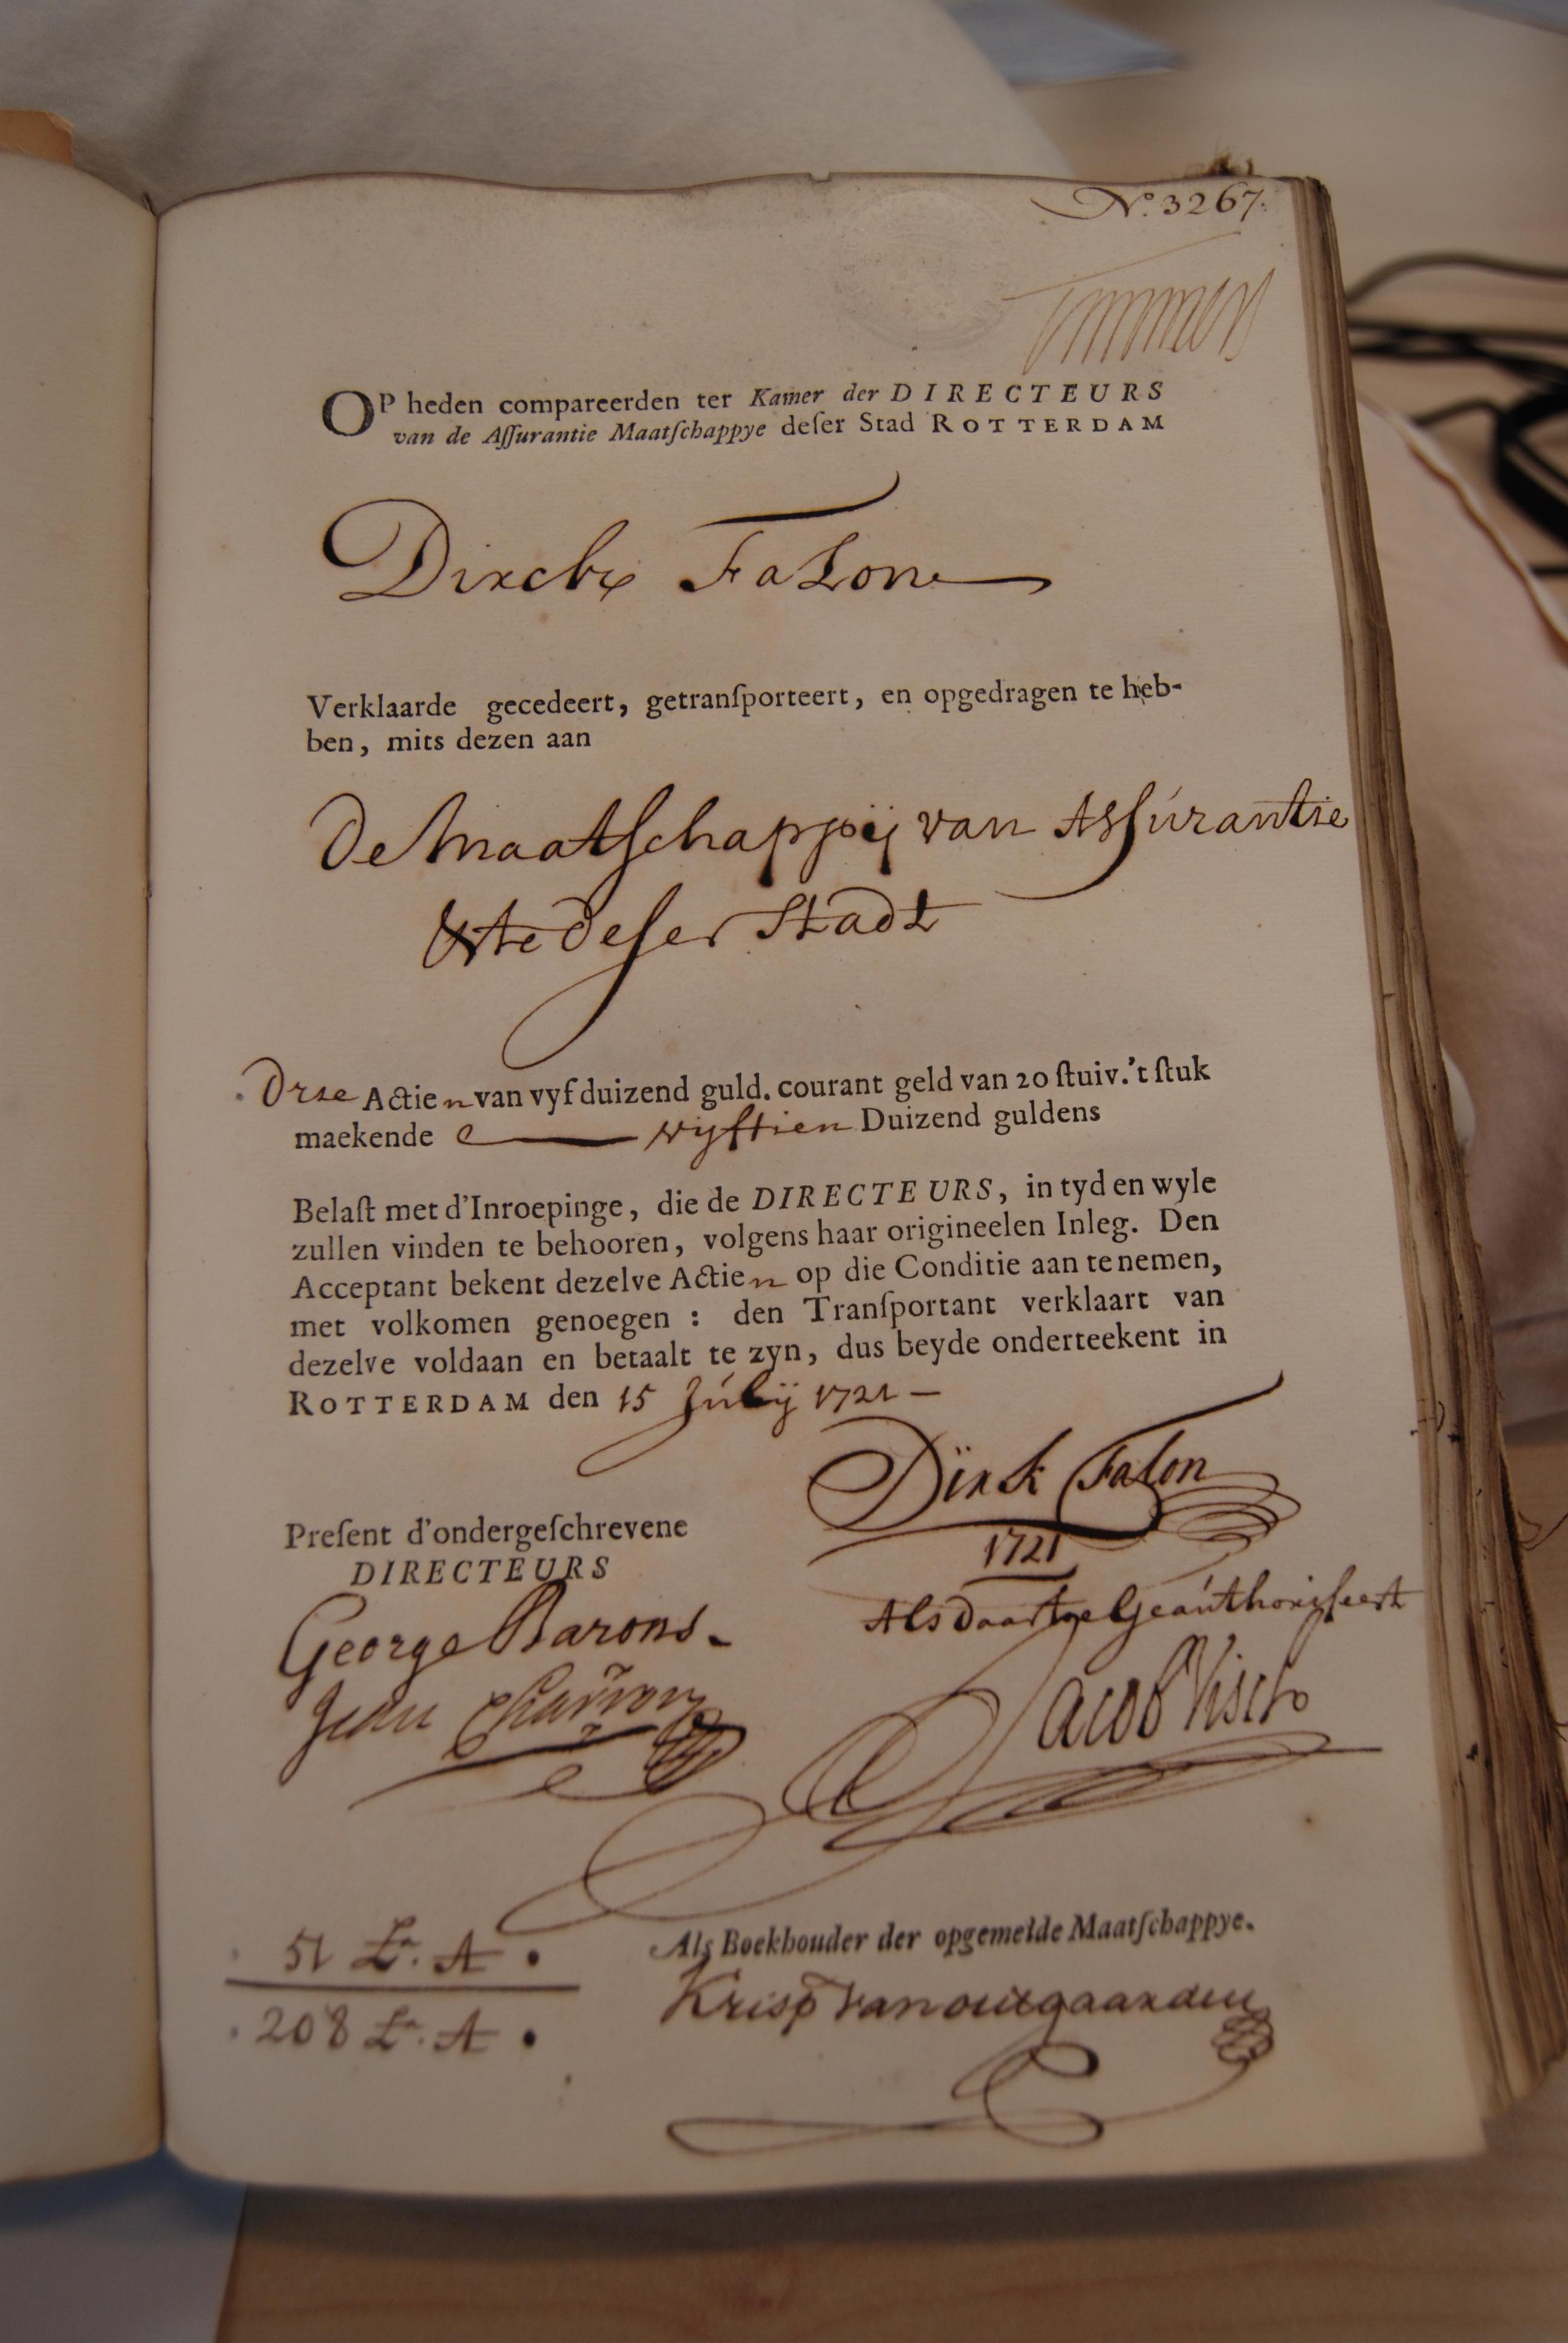 No. 3267.
OP heden compareerden ter Kamer der DIRECTEURS
van de Aſſurantie Maatſchappye deſer Stad ROTTERDAM
Dirck Falon
Verklaarde gecedeert, getranſporteert, en opgedragen te heb-
ben, mits dezen aan
De Maatſchappij van Aſſurantie
te deſer Stadt
Drie Actien van vyf duizend guld. courant geld van 20 ſtuiv. 't ſtuk
maekende vyftien Duizend guldens
Belaſt met d'Inroepinge, die de DIRECTEURS, in tyd en wyle
zullen vinden te behooren, volgens haar origineelen Inleg. Den
Acceptant bekent dezelve Actien op die Conditie aan te nemen,
met volkomen genoegen : den Tranſportant verklaart van
dezelve voldaan en betaalt te zyn, dus beyde onderteekent in
ROTTERDAM den 15 Julij 1721 —
Dirk Falon
1721
Preſent d'ondergeſchrevene
DIRECTEURS
Als daartoe Geauthoriſeert
George Barons.
Jacob Visch
Jean Charron
Als Boekhouder der opgemelde Maatſchappye.
51 La. A
Krisp van outgaarden
208 La. A